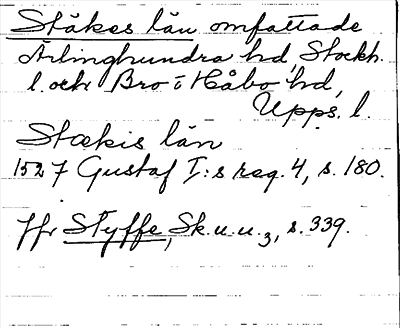 Stäkes län omfattade
Ärlinghundra hd, Stockh.
l. och Bro o Håbo hd,
Upps. l.
Stækis län
1527 Gustaf I:s reg. 4, s. 180.
Jfr Styffe, Sk. u. u. 3, s. 339.